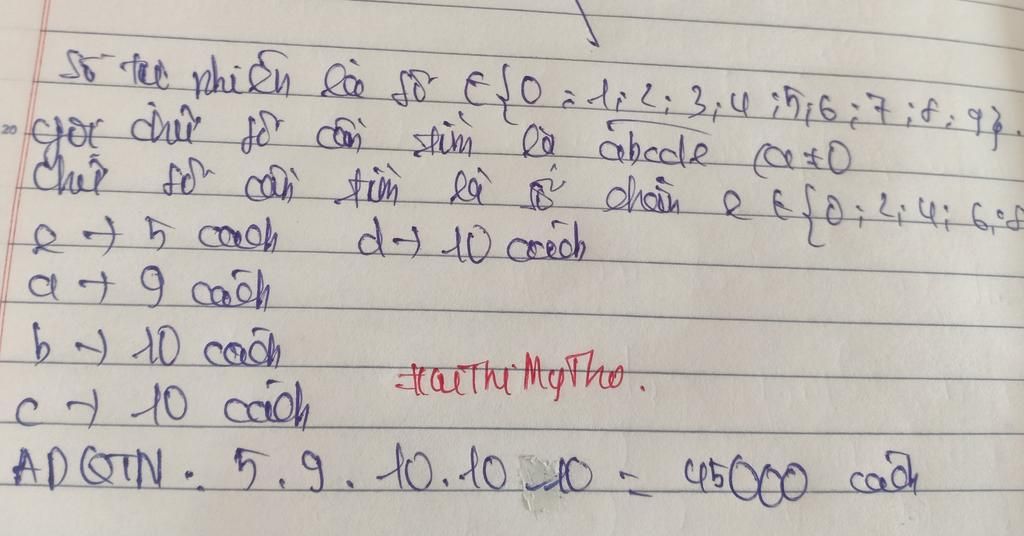 Số tự nhiên là số ∈ {0 ; 1 ; 2 ; 3 ; 4 ; 5 ; 6 ; 7 ; 8 ; 9}.
20
Gọi chữ số cần tìm là abcde (a ≠ 0
Chữ số cần tìm là số chẵn e ∈ {0 ; 2 ; 4 ; 6 ; 8
e → 5 cách d → 10 cách
a → 9 cách
b → 10 cách
HaiThiMyTho.
c → 10 cách
ADQTN : 5 . 9 . 10 . 10 . 10 = 45000 cách